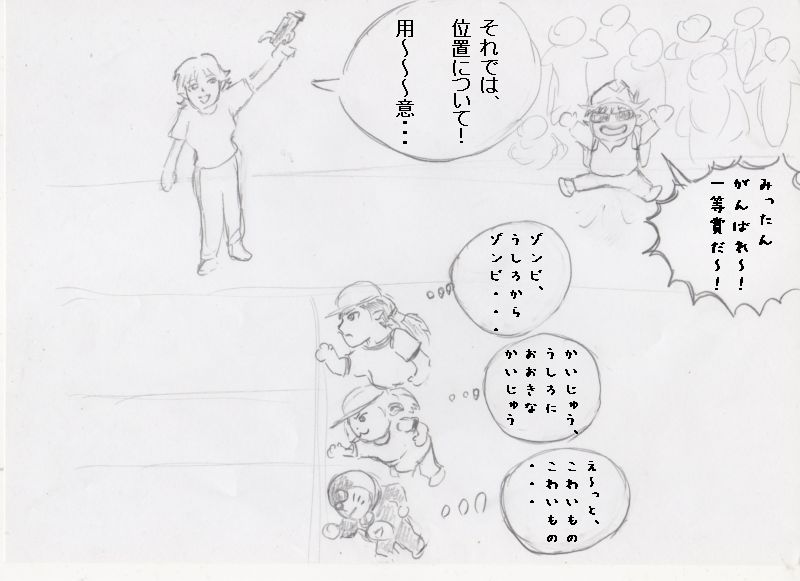 それでは、
位置について！
用～～～意・・・
みったん
がんばれ～！
一等賞だ～！
ゾンビ、
うしろから
ゾンビ・・・
かいじゅう、
うしろに
おおきな
かいじゅう
え～っと、
こわいもの
こわいもの
・・・